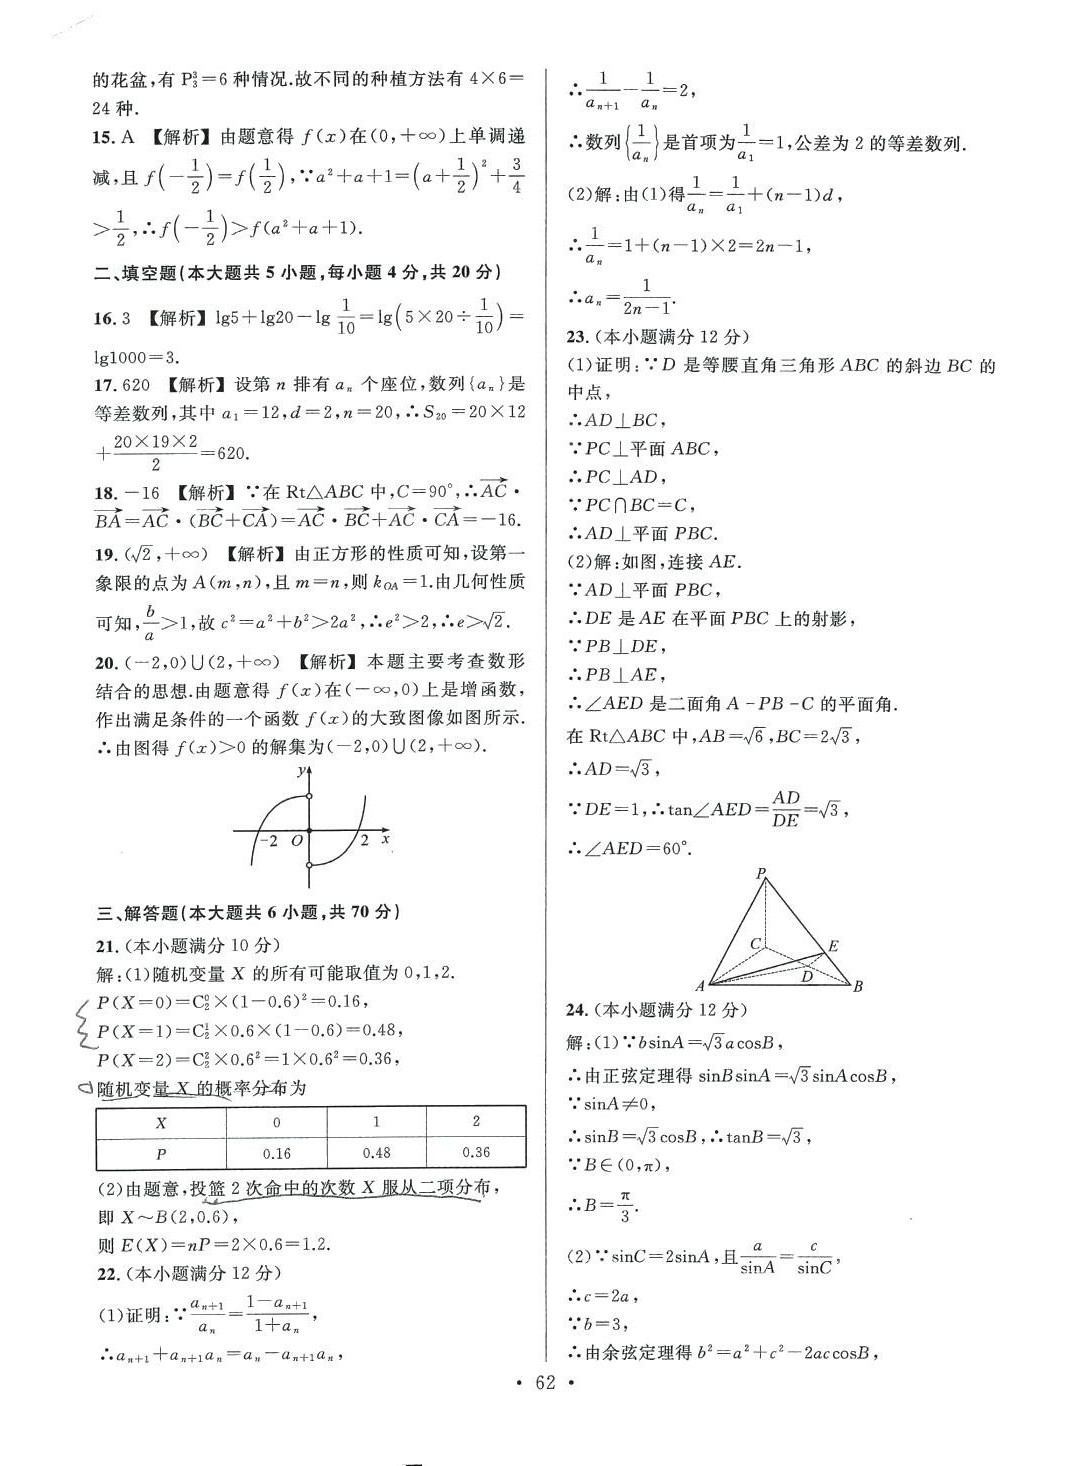 的花盆,有 P₃³=6 种情况.故不同的种植方法有 4×6=
24 种.
15. A 【解析】由题意得 f(x)在(0,+∞)上单调递
减,且 f(-1/2)=f(1/2),∵a²+a+1=(a+1/2)²+3/4
>1/2,∴f(-1/2)>f(a²+a+1).
二、填空题(本大题共 5 小题,每小题 4 分,共 20 分)
16. 3 【解析】lg5+lg20-lg 1/10=lg(5×20÷1/10)=
lg1000=3.
17. 620 【解析】设第 n 排有 aₙ 个座位,数列{aₙ}是
等差数列,其中 a₁=12,d=2,n=20,∴S₂₀=20×12
+(20×19×2)/2=620.
18. -16 【解析】∵在 Rt△ABC 中,C=90°,∴AC→·
BA→=AC→·(BC→+CA→)=AC→·BC→+AC→·CA→=-16.
19. (√2,+∞) 【解析】由正方形的性质可知,设第一
象限的点为 A(m,n),且 m=n,则 k_OA=1.由几何性质
可知,b/a>1,故 c²=a²+b²>2a²,∴e²>2,∴e>√2.
20. (-2,0)∪(2,+∞) 【解析】本题主要考查数形
结合的思想.由题意得 f(x)在(-∞,0)上是增函数,
作出满足条件的一个函数 f(x)的大致图像如图所示.
∴由图得 f(x)>0 的解集为(-2,0)∪(2,+∞).
y
-2 O 2 x
三、解答题(本大题共 6 小题,共 70 分)
21. (本小题满分 10 分)
解:(1)随机变量 X 的所有可能取值为 0,1,2.
P(X=0)=C₂⁰×(1-0.6)²=0.16,
P(X=1)=C₂¹×0.6×(1-0.6)=0.48,
P(X=2)=C₂²×0.6²=1×0.6²=0.36,
随机变量 X 的概率分布为
X 0 1 2
P 0.16 0.48 0.36
(2)由题意,投篮 2 次命中的次数 X 服从二项分布,
即 X~B(2,0.6),
则 E(X)=nP=2×0.6=1.2.
22. (本小题满分 12 分)
(1)证明:∵aₙ₊₁/aₙ=(1-aₙ₊₁)/(1+aₙ),
∴aₙ₊₁+aₙ₊₁aₙ=aₙ-aₙ₊₁aₙ,
∴1/aₙ₊₁-1/aₙ=2,
∴数列{1/aₙ}是首项为1/a₁=1,公差为 2 的等差数列.
(2)解:由(1)得1/aₙ=1/a₁+(n-1)d,
∴1/aₙ=1+(n-1)×2=2n-1,
∴aₙ=1/(2n-1).
23. (本小题满分 12 分)
(1)证明:∵D 是等腰直角三角形 ABC 的斜边 BC 的
中点,
∴AD⊥BC,
∵PC⊥平面 ABC,
∴PC⊥AD,
∵PC∩BC=C,
∴AD⊥平面 PBC.
(2)解:如图,连接 AE.
∵AD⊥平面 PBC,
∴DE 是 AE 在平面 PBC 上的射影,
∵PB⊥DE,
∴PB⊥AE,
∴∠AED 是二面角 A-PB-C 的平面角.
在 Rt△ABC 中,AB=√6,BC=2√3,
∴AD=√3,
∵DE=1,∴tan∠AED=AD/DE=√3,
∴∠AED=60°.
P
C E
D
A B
24. (本小题满分 12 分)
解:(1)∵bsinA=√3acosB,
∴由正弦定理得 sinBsinA=√3sinAcosB,
∵sinA≠0,
∴sinB=√3cosB,∴tanB=√3,
∵B∈(0,π),
∴B=π/3.
(2)∵sinC=2sinA,且a/sinA=c/sinC,
∴c=2a,
∵b=3,
∴由余弦定理得 b²=a²+c²-2accosB,
· 62 ·